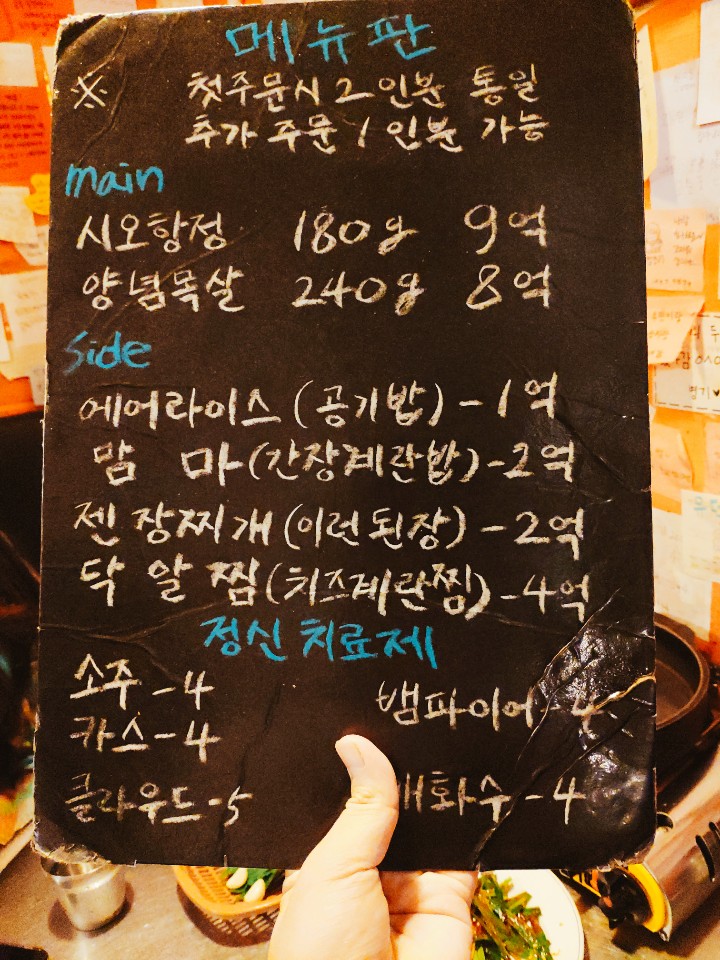 메뉴판
※ 첫주문시 2인분 통일
추가 주문 1인분 가능
main
시오항정 180g 9억
양념목살 240g 8억
Side
에어라이스 (공기밥) - 1억
맘 마 (간장계란밥) - 2억
젠장찌개 (이런된장) - 2억
닥알찜 (치즈계란찜) - 4억
정신치료제
소주 - 4
뱀파이어 - 4
카스 - 4
클라우드 - 5
화수 - 4